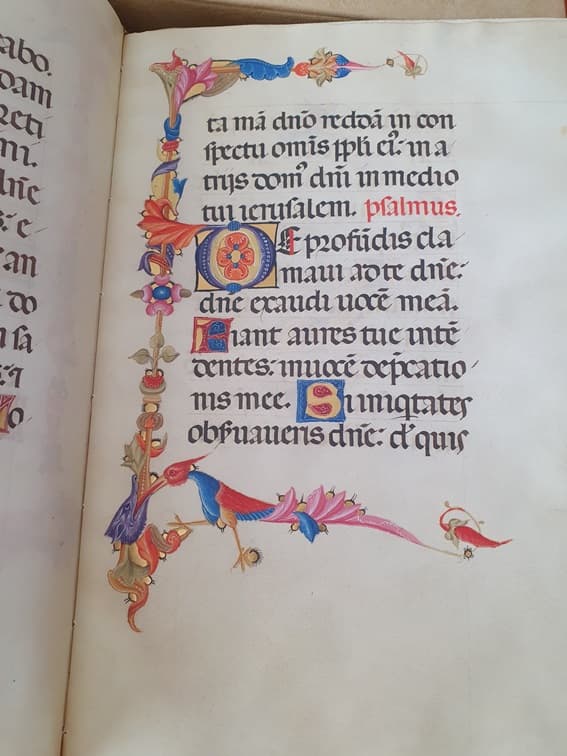 abo.
dam
reti
ni.
dñe
s: e
an
do
n sa
s: q
o
ta mã dnõ reddã in con
spectu omĩs ppli ei': in a
trijs dom' dñi in medio
tui ierusalem. psalmus.
De profũdis cla
maui ad te dñe:
dñe exaudi uocẽ meã.
Fiant aures tue intẽ
dentes: in uocẽ dep̃catio
nis mee. Si iniq̃tates
obs̃uaueris dñe: dñe quis